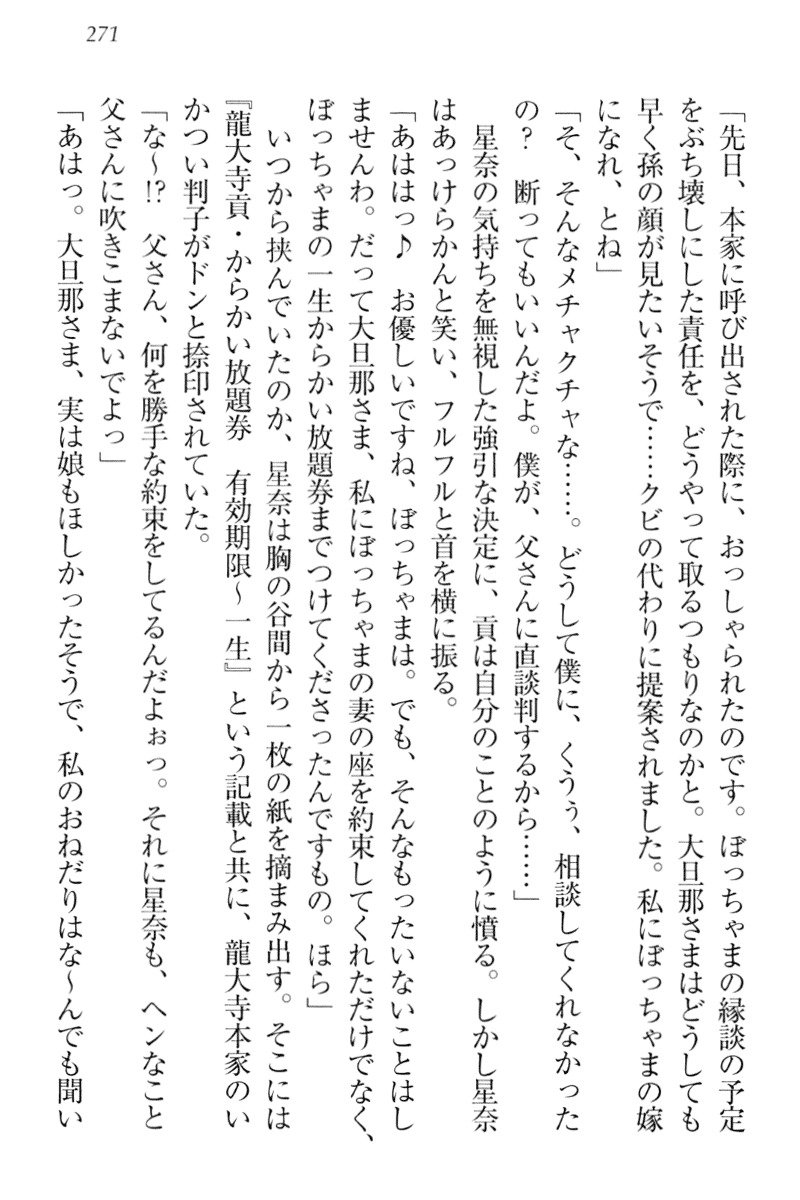 271
「先日、本家に呼び出された際に、おっしゃられたのです。ぼっちゃまの縁談の予定
をぶち壊しにした責任を、どうやって取るつもりなのかと。大旦那さまはどうしても
早く孫の顔が見たいそうで……クビの代わりに提案されました。私にぼっちゃまの嫁
になれ、とね」
「そ、そんなメチャクチャな……。どうして僕に、くうぅ、相談してくれなかった
の?　断ってもいいんだよ。僕が、父さんに直談判するから……」
　星奈の気持ちを無視した強引な決定に、貢は自分のことのように憤る。しかし星奈
はあっけらかんと笑い、フルフルと首を横に振る。
「あははっ♪　お優しいですね、ぼっちゃまは。でも、そんなもったいないことはし
ませんわ。だって大旦那さま、私にぼっちゃまの妻の座を約束してくれただけでなく、
ぼっちゃまの一生からかい放題券までつけてくださったんですもの。ほら」
　いつから挟んでいたのか、星奈は胸の谷間から一枚の紙を摘まみ出す。そこには
『龍大寺貢・からかい放題券　有効期限～一生』という記載と共に、龍大寺本家のい
かつい判子がドンと捺印されていた。
「な～!?　父さん、何を勝手な約束をしてるんだよぉっ。それに星奈も、ヘンなこと
父さんに吹きこまないでよっ」
「あはっ。大旦那さま、実は娘もほしかったそうで、私のおねだりはな～んでも聞い